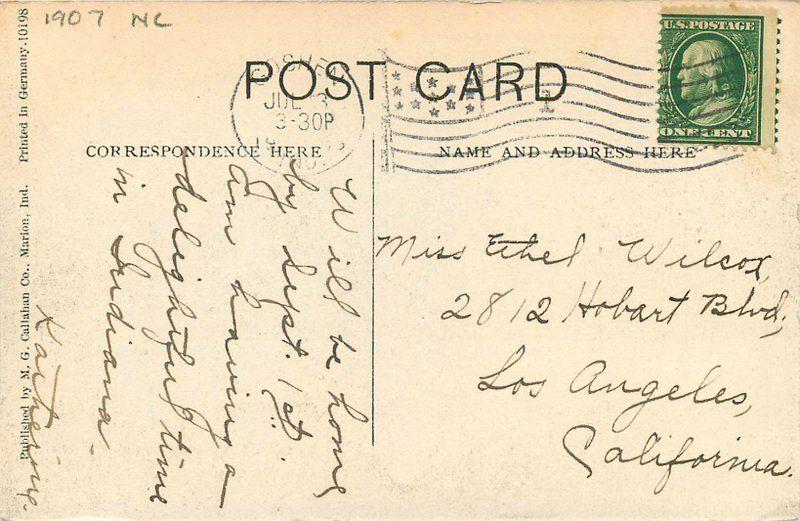 1907 NC
Printed in Germany. 10198
Published by M. G. Callahan Co., Marion, Ind.
POST CARD
GOSHEN
JUL 3
3-30P
IND.
U.S. POSTAGE
ONE CENT
CORRESPONDENCE HERE
NAME AND ADDRESS HERE
Will be home
by Sept. 1st.
Am having a
delightful time
in Indiana.
Katherine.
Miss Ethel Wilcox,
2812 Hobart Blvd,
Los Angeles,
California.